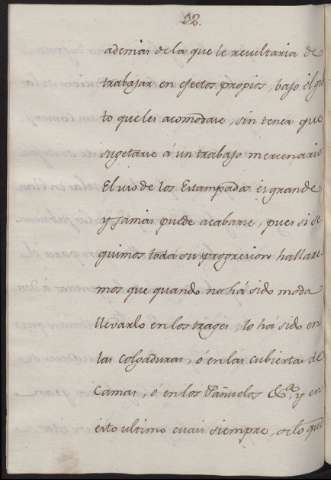 52.
ademas de la que le resultaria de
trabajar en efectos propios, bajo el gus
to que les acomodase, sin tener que
sugetarse á un trabajo mercenario
El uso de los Estampados es grande
y jamas puede acabarse, pues si se
guimos toda su progresion hallare
mos que quando no há sido moda
llevarlo en los trages, lo há sido en
las colgaduras, ó en las cubiertas de
Camas, ó en los Pañuelos &ª. y en
esto ultimo cuasi siempre, solo que